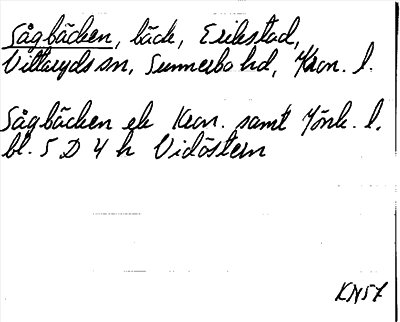 Sågbäcken, bäck, Erikstad,
Vittaryds sn, Sunnerbo hd, Kron. l.
Sågbäcken ek Kron. samt Jönk. l.
bl. 5 D 4 h Vidöstern
KN57